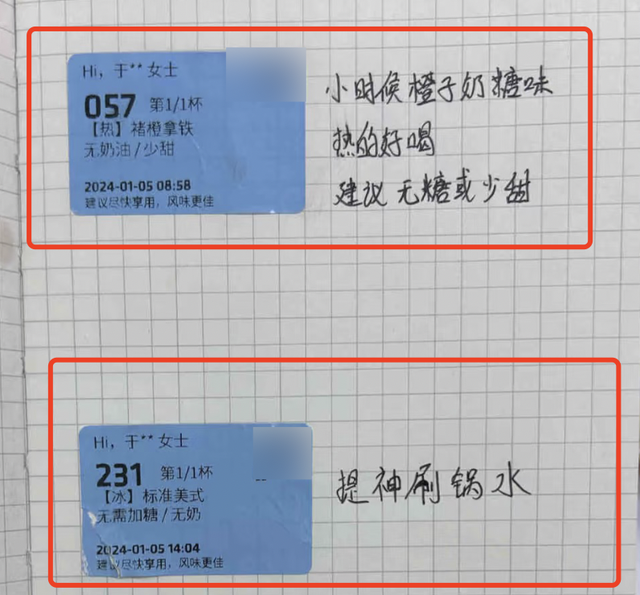 Hi，于** 女士
057 第1/1杯
【热】褚橙拿铁
无奶油/少甜
2024-01-05 08:58
建议尽快享用，风味更佳
小时候橙子奶糖味
热的好喝
建议无糖或少甜
Hi，于** 女士
231 第1/1杯
【冰】标准美式
无需加糖/无奶
2024-01-05 14:04
建议尽快享用，风味更佳
提神刷锅水